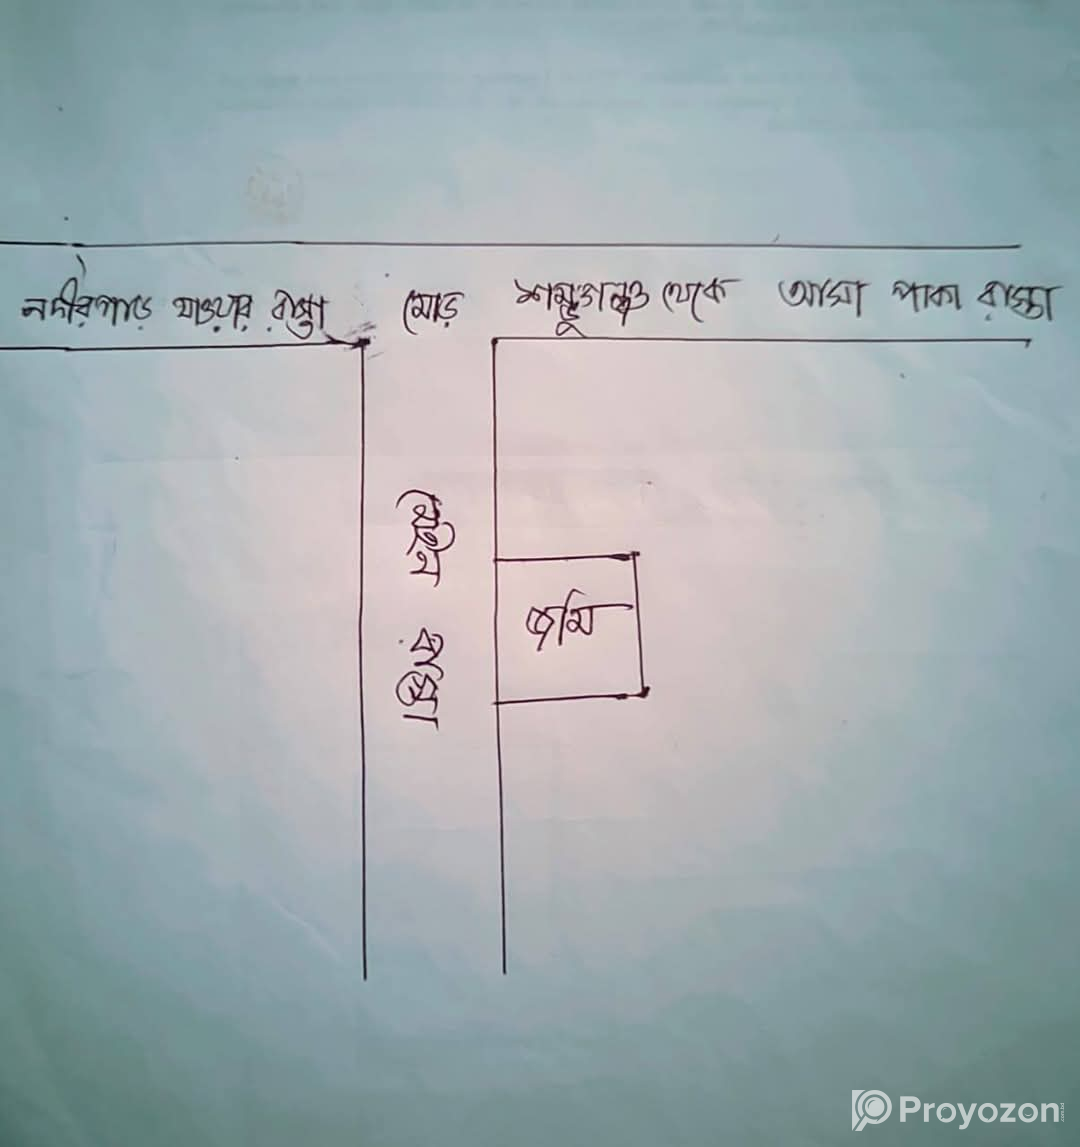 নদীরপাড় যাওয়ার রাস্তা
মোড়
শম্ভুগঞ্জ থেকে আসা পাকা রাস্তা
মেইন রাস্তা
জমি
Proyozon